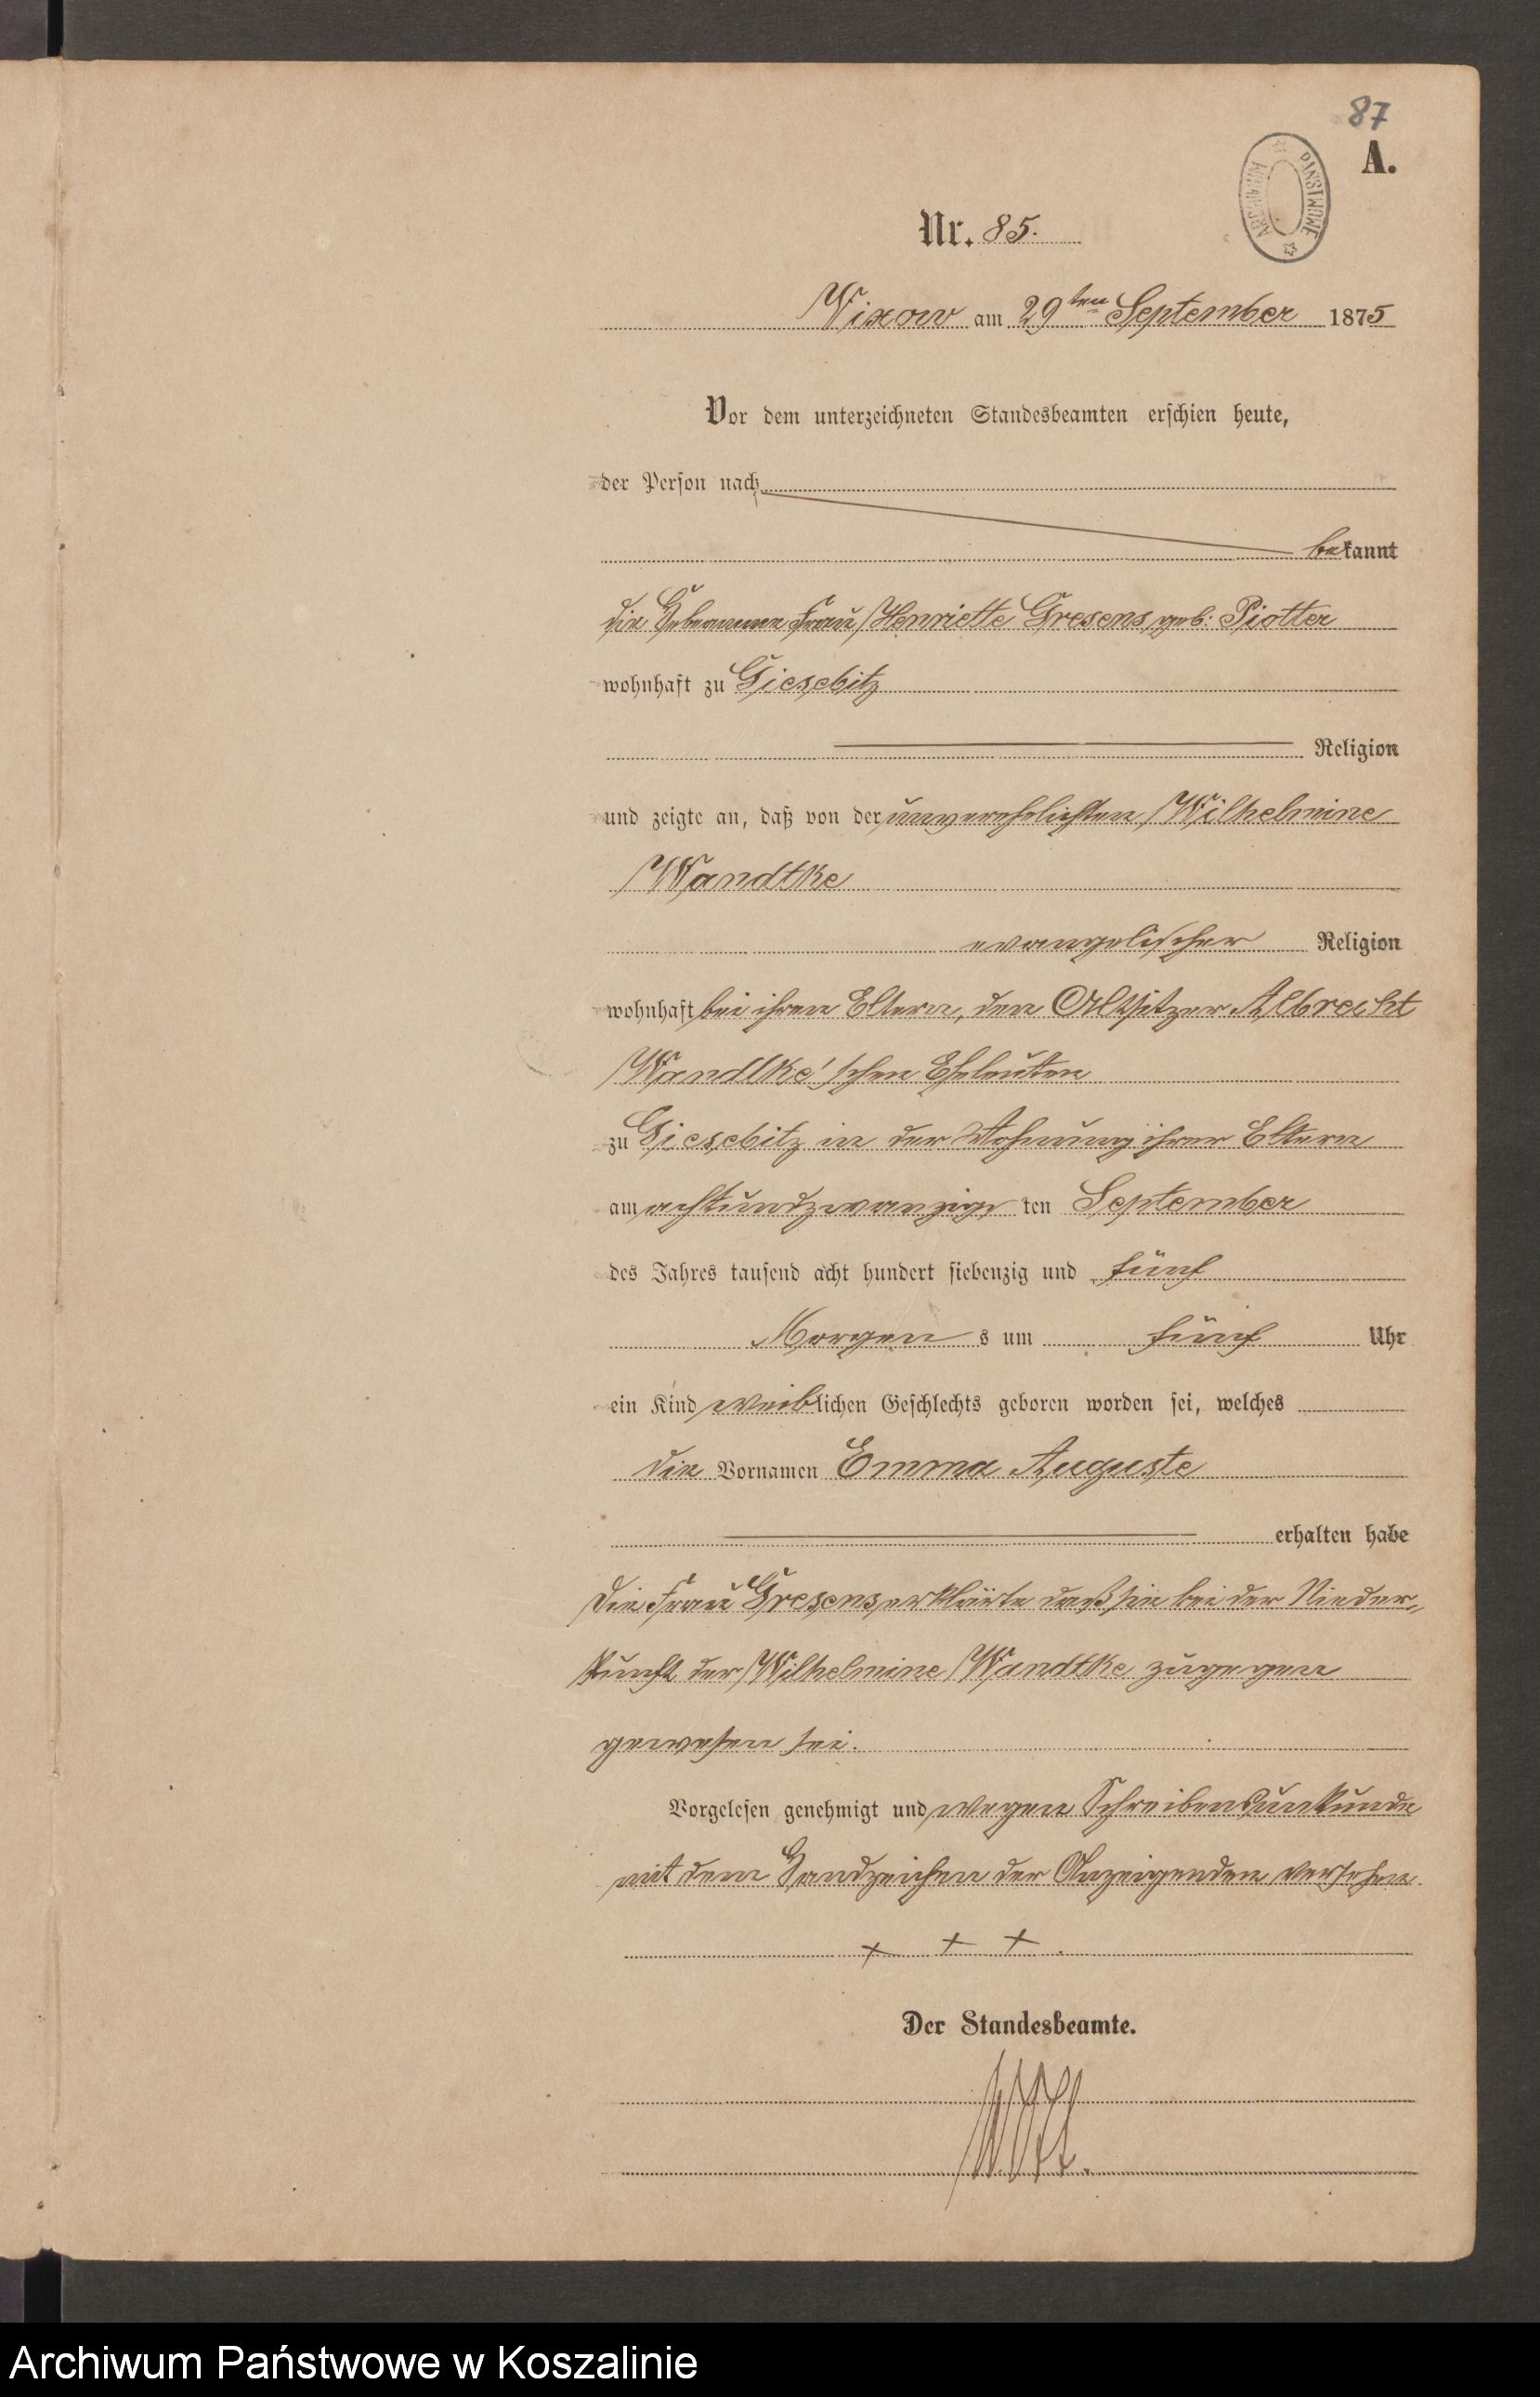 87
A.
ARCHIWUM PAŃSTWOWE
Nr. 85.
Vixow am 29ten September 1875
Vor dem unterzeichneten Standesbeamten erschien heute,
der Person nach
bekannt
die Hebamme Frau Henriette Gresens geb: Piotter
wohnhaft zu Giesebitz
Religion
und zeigte an, daß von der unverehelichten Wilhelmine
Wandtke
evangelischer Religion
wohnhaft bei ihren Eltern, den Altsitzer Albrecht
Wandtke'schen Eheleuten
zu Giesebitz in der Wohnung ihrer Eltern
am achtundzwanzig ten September
des Jahres tausend acht hundert siebenzig und fünf
Morgen s um fünf Uhr
ein Kind weiblichen Geschlechts geboren worden sei, welches
die Vornamen Emma Auguste
erhalten habe
Die Frau Gresens erklärte daß sie bei der Nieder-
kunft der Wilhelmine Wandtke zugegen
gewesen sei.
Vorgelesen genehmigt und wegen Schreibensunkunde
mit dem Handzeichen der Anzeigenden versehen.
+ + + .
Der Standesbeamte.
Archiwum Państwowe w Koszalinie